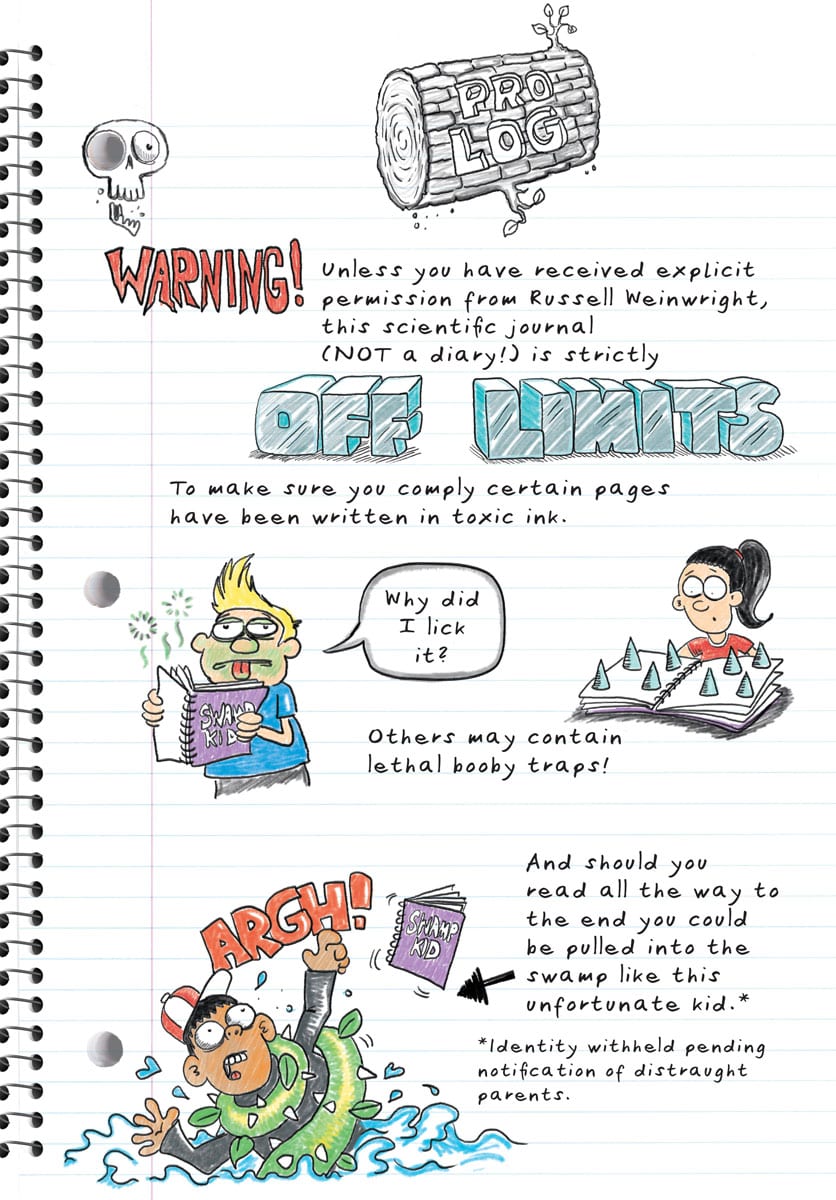 PRO
LOG
WARNING!
Unless you have received explicit
permission from Russell Weinwright,
this scientific journal
(NOT a diary!) is strictly
OFF LIMITS
To make sure you comply certain pages
have been written in toxic ink.
Why did
I lick
it?
SWAMP
KID
Others may contain
lethal booby traps!
ARGH!
SWAMP
KID
And should you
read all the way to
the end you could
be pulled into the
swamp like this
unfortunate kid.*
*Identity withheld pending
notifcation of distraught
parents.